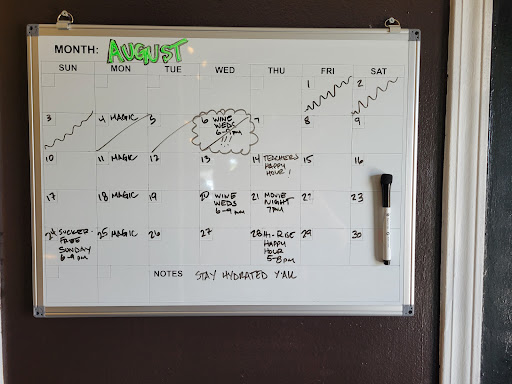 MONTH: AUGUST
SUN MON TUE WED THU FRI SAT
1 2
3 4 MAGIC 5 6 WINE 7 8 9
WEDS
6-9PM
!!!
10 11 MAGIC 12 13 14 TEACHERS 15 16
HAPPY
HOUR!
17 18 MAGIC 19 20 WINE 21 MOVIE 22 23
WEDS NIGHT
6-9PM 7PM
24 SUCKER- 25 MAGIC 26 27 28 HI-RISE 29 30
FREE HAPPY
SUNDAY HOUR
6-9PM 5-8PM
NOTES STAY HYDRATED Y'ALL